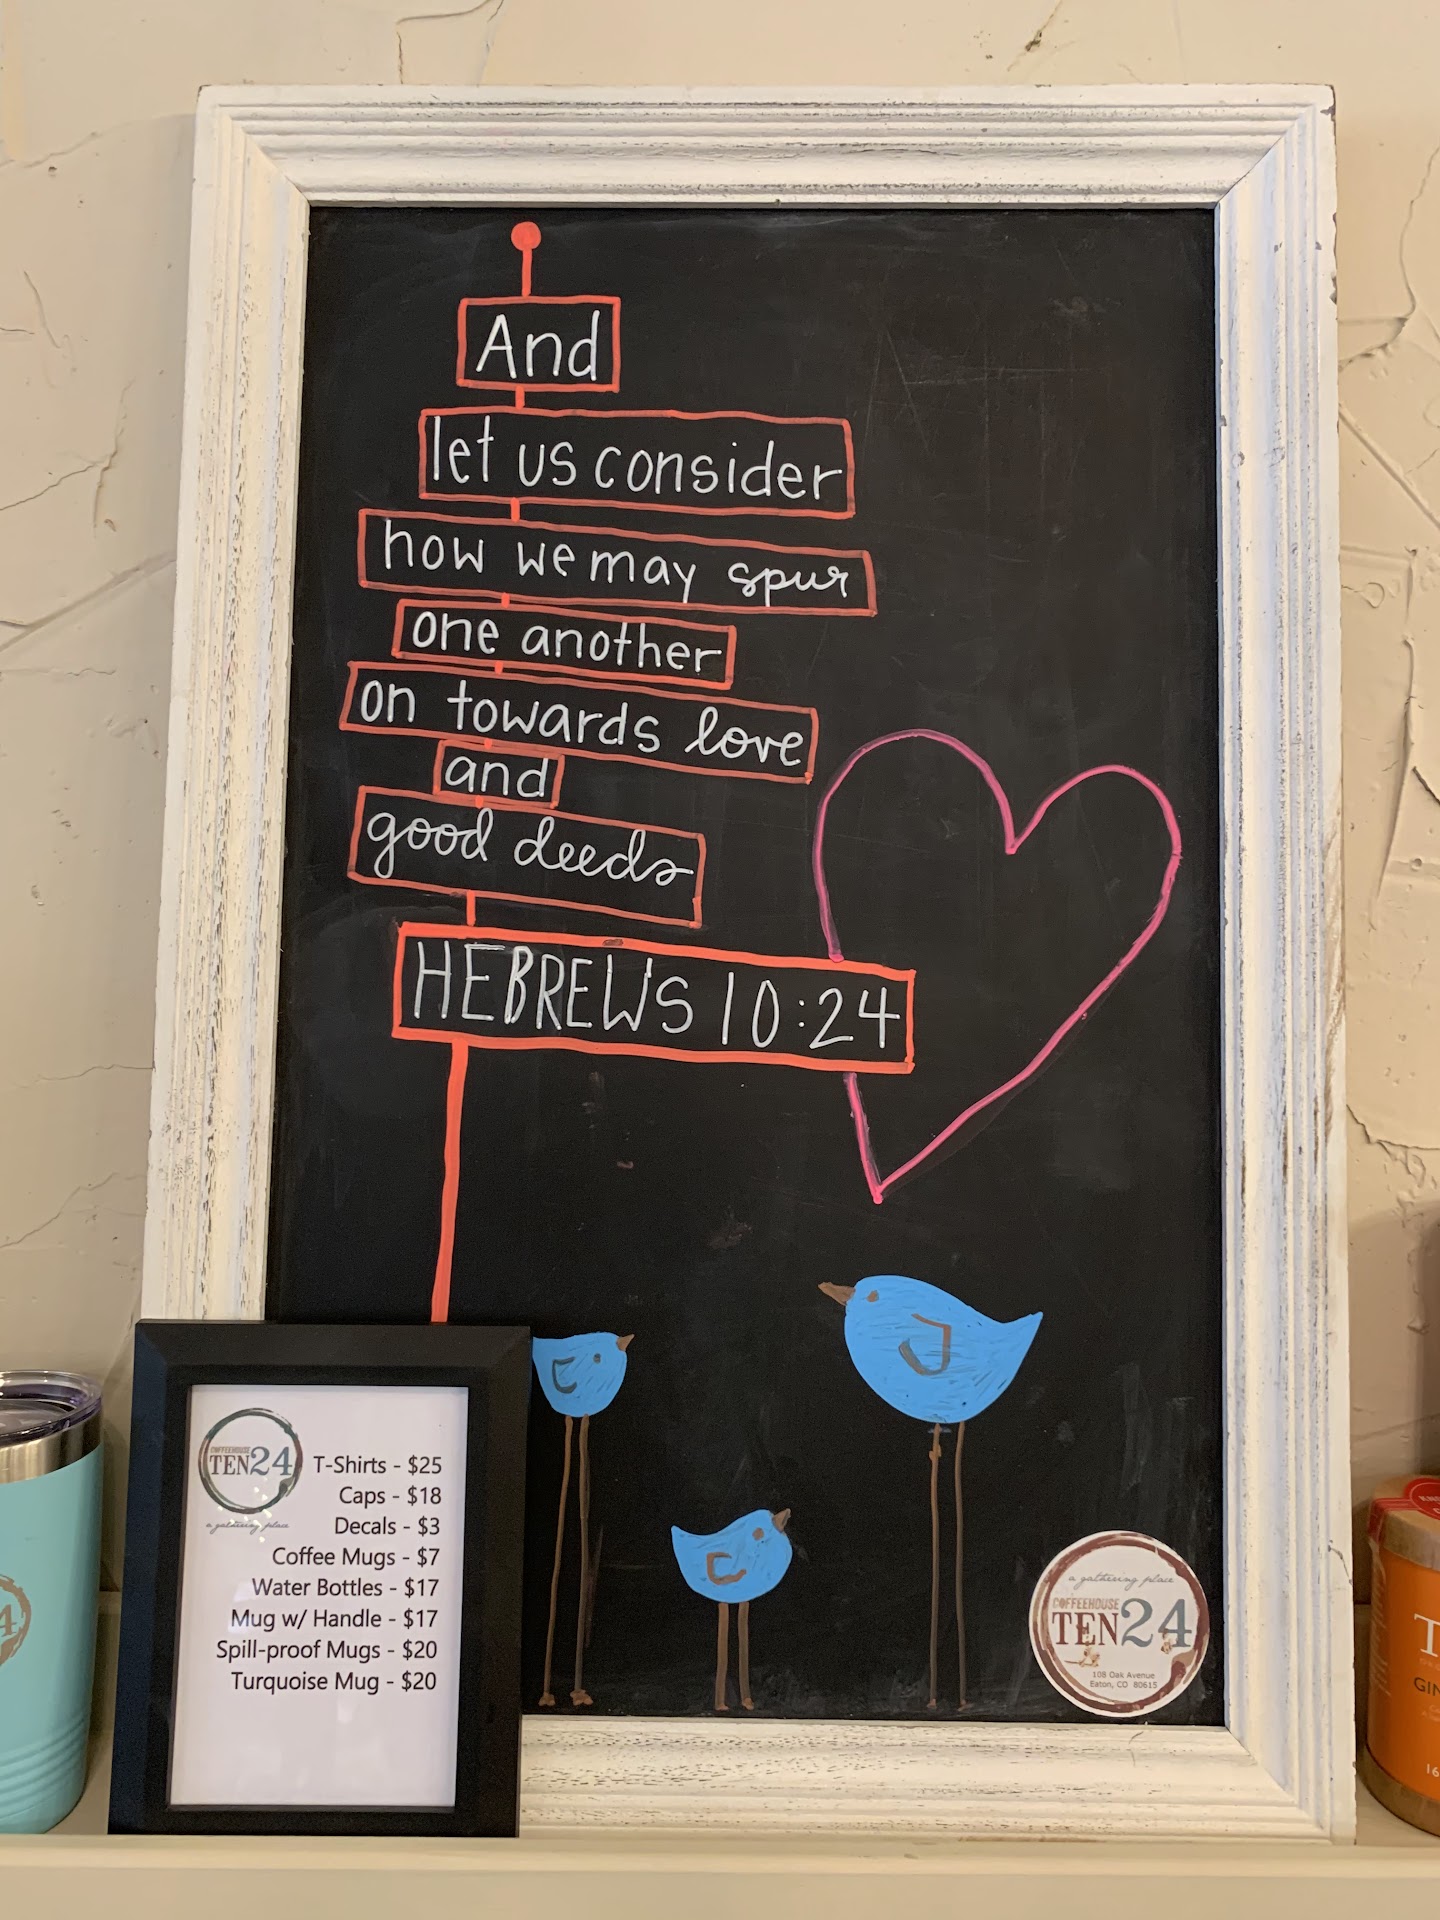 And
let us consider
how we may spur
one another
on towards love
and
good deeds
HEBREWS 10:24
COFFEEHOUSE
TEN24
a gathering place
T-Shirts - $25
Caps - $18
Decals - $3
Coffee Mugs - $7
Water Bottles - $17
Mug w/ Handle - $17
Spill-proof Mugs - $20
Turquoise Mug - $20
a gathering place
COFFEEHOUSE
TEN24
108 Oak Avenue
Eaton, CO 80615
4
GIN
16